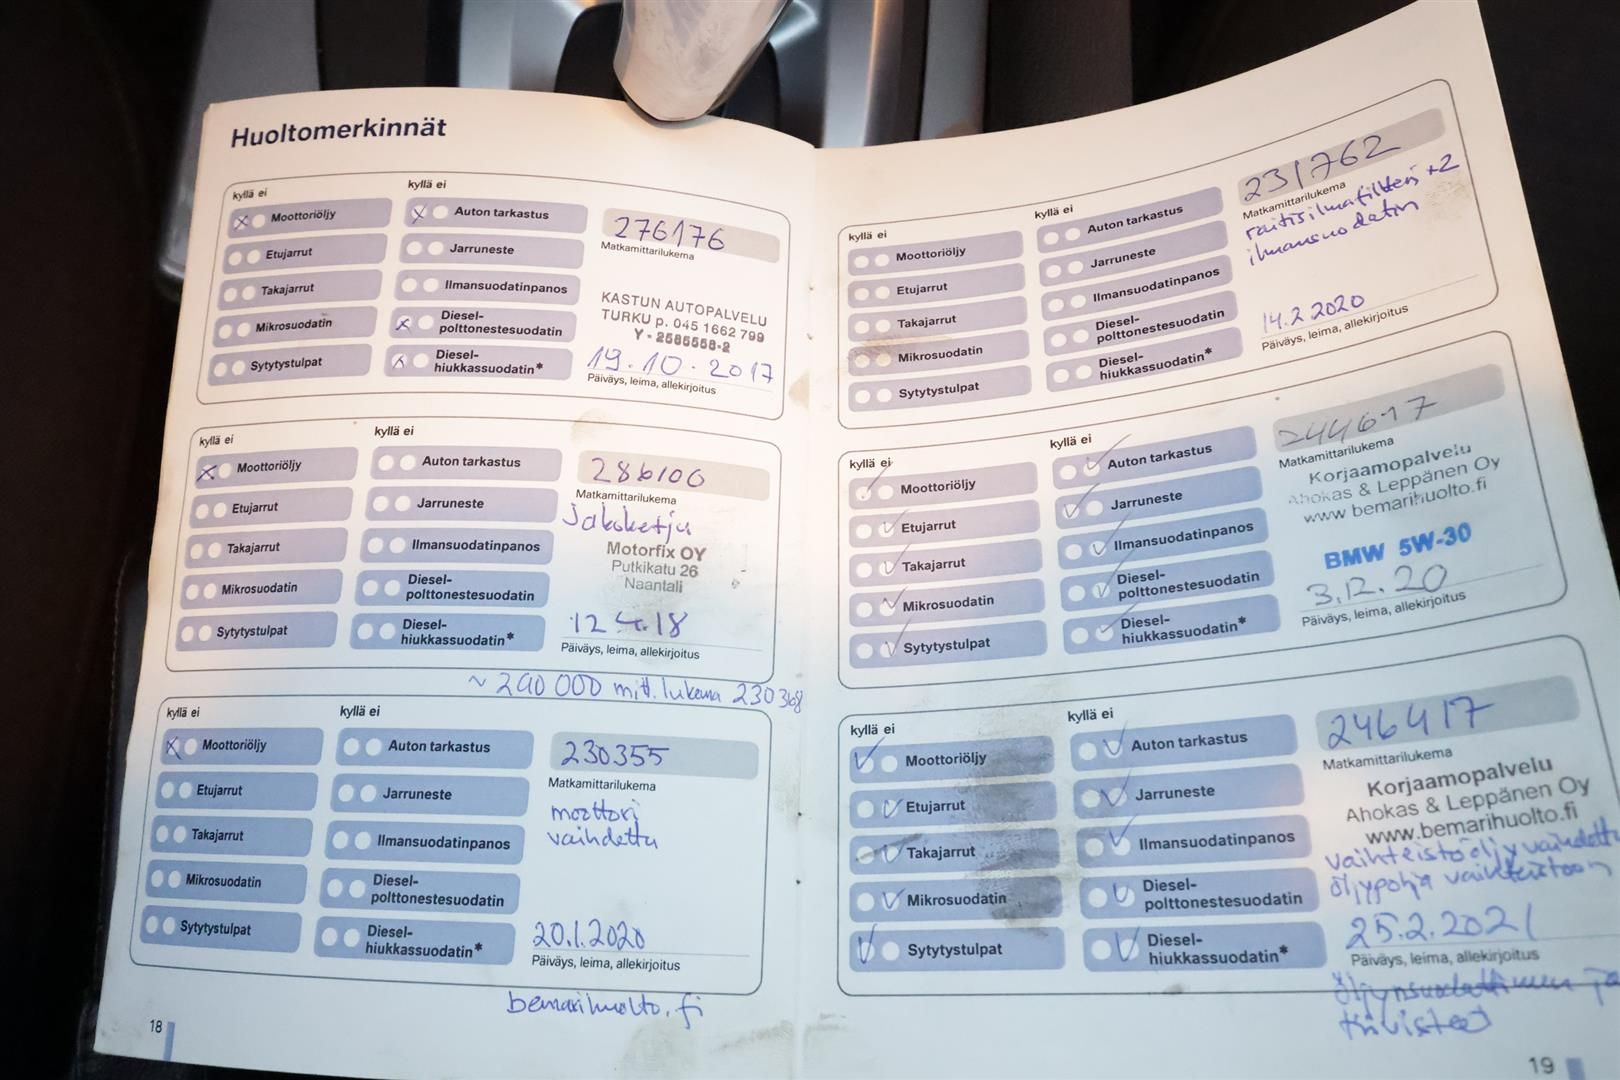 Huoltomerkinnät
kyllä ei
kyllä ei
Moottoriöljy
Etujarrut
Takajarrut
Mikrosuodatin
Sytytystulpat
Auton tarkastus
Jarruneste
Ilmansuodatinpanos
Diesel-
polttonestesuodatin
Diesel-
hiukkassuodatin*
276176
Matkamittarilukema
KASTUN AUTOPALVELU
TURKU p. 045 1662 799
Y - 2585558-2
19.10.2017
Päiväys, leima, allekirjoitus
kyllä ei
kyllä ei
Moottoriöljy
Etujarrut
Takajarrut
Mikrosuodatin
Sytytystulpat
Auton tarkastus
Jarruneste
Ilmansuodatinpanos
Diesel-
polttonestesuodatin
Diesel-
hiukkassuodatin*
286106
Matkamittarilukema
Jakoketju
Motorfix OY
Putkikatu 26
Naantali
12 4.18
Päiväys, leima, allekirjoitus
~ 290 000 mitt. lukema 230368
kyllä ei
kyllä ei
Moottoriöljy
Etujarrut
Takajarrut
Mikrosuodatin
Sytytystulpat
Auton tarkastus
Jarruneste
Ilmansuodatinpanos
Diesel-
polttonestesuodatin
Diesel-
hiukkassuodatin*
230355
Matkamittarilukema
moottori
vaihdettu
20.1.2020
Päiväys, leima, allekirjoitus
bemarihuolto.fi
18
kyllä ei
kyllä ei
Moottoriöljy
Etujarrut
Takajarrut
Mikrosuodatin
Sytytystulpat
Auton tarkastus
Jarruneste
Ilmansuodatinpanos
Diesel-
polttonestesuodatin
Diesel-
hiukkassuodatin*
231762
Matkamittarilukema
raitisilmafiltteri +2
ilmansuodatin
14.2.2020
Päiväys, leima, allekirjoitus
kyllä ei
kyllä ei
Moottoriöljy
Etujarrut
Takajarrut
Mikrosuodatin
Sytytystulpat
Auton tarkastus
Jarruneste
Ilmansuodatinpanos
Diesel-
polttonestesuodatin
Diesel-
hiukkassuodatin*
244617
Matkamittarilukema
Korjaamopalvelu
Ahokas & Leppänen Oy
www.bemarihuolto.fi
BMW 5W-30
3.12.20
Päiväys, leima, allekirjoitus
kyllä ei
kyllä ei
Moottoriöljy
Etujarrut
Takajarrut
Mikrosuodatin
Sytytystulpat
Auton tarkastus
Jarruneste
Ilmansuodatinpanos
Diesel-
polttonestesuodatin
Diesel-
hiukkassuodatin*
246417
Matkamittarilukema
Korjaamopalvelu
Ahokas & Leppänen Oy
www.bemarihuolto.fi
vaihteistoöljy vaihdettu
öljypohja vaihteistoon
25.2.2021
Päiväys, leima, allekirjoitus
öljynsuodattimen ja
tiivisteet
19